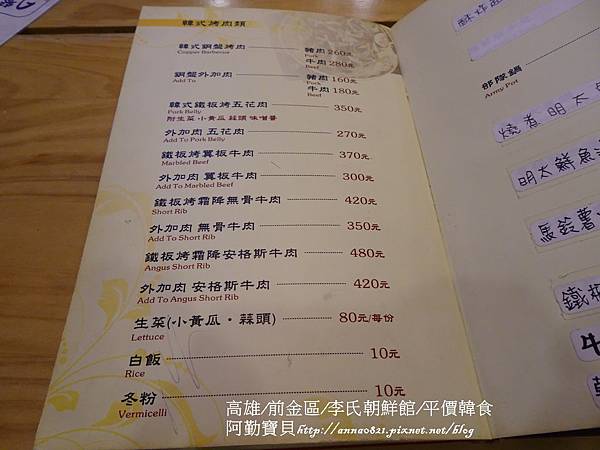 韓式烤肉類
韓式銅盤烤肉 豬肉260元
Copper Barbecue Pork
牛肉280元
Beef
銅盤外加肉 豬肉160元
Add To Pork
牛肉180元
Beef
韓式鐵板烤五花肉 350元
Pork Belly
附生菜 小黃瓜 蒜頭 味噌醬
外加肉 五花肉 270元
Add To Pork Belly
鐵板烤翼板牛肉 370元
Marbled Beef
外加肉 翼板牛肉 300元
Add To Marbled Beef
鐵板烤霜降無骨牛肉 420元
Short Rib
外加肉 無骨牛肉 350元
Add To Short Rib
鐵板烤霜降安格斯牛肉 480元
Angus Short Rib
外加肉 安格斯牛肉 420元
Add To Angus Short Rib
生菜(小黃瓜·蒜頭) 80元/每份
Lettuce
白飯 10元
Rice
冬粉 10元
Vermicelli
部隊鍋
Army Pot
燒煮明太魚
明太鮮魚
馬鈴薯
鐵板
牛
高雄/前金區/李氏朝鮮館/平價韓食
阿勤寶貝http://anna0821.pixnet.net/blog